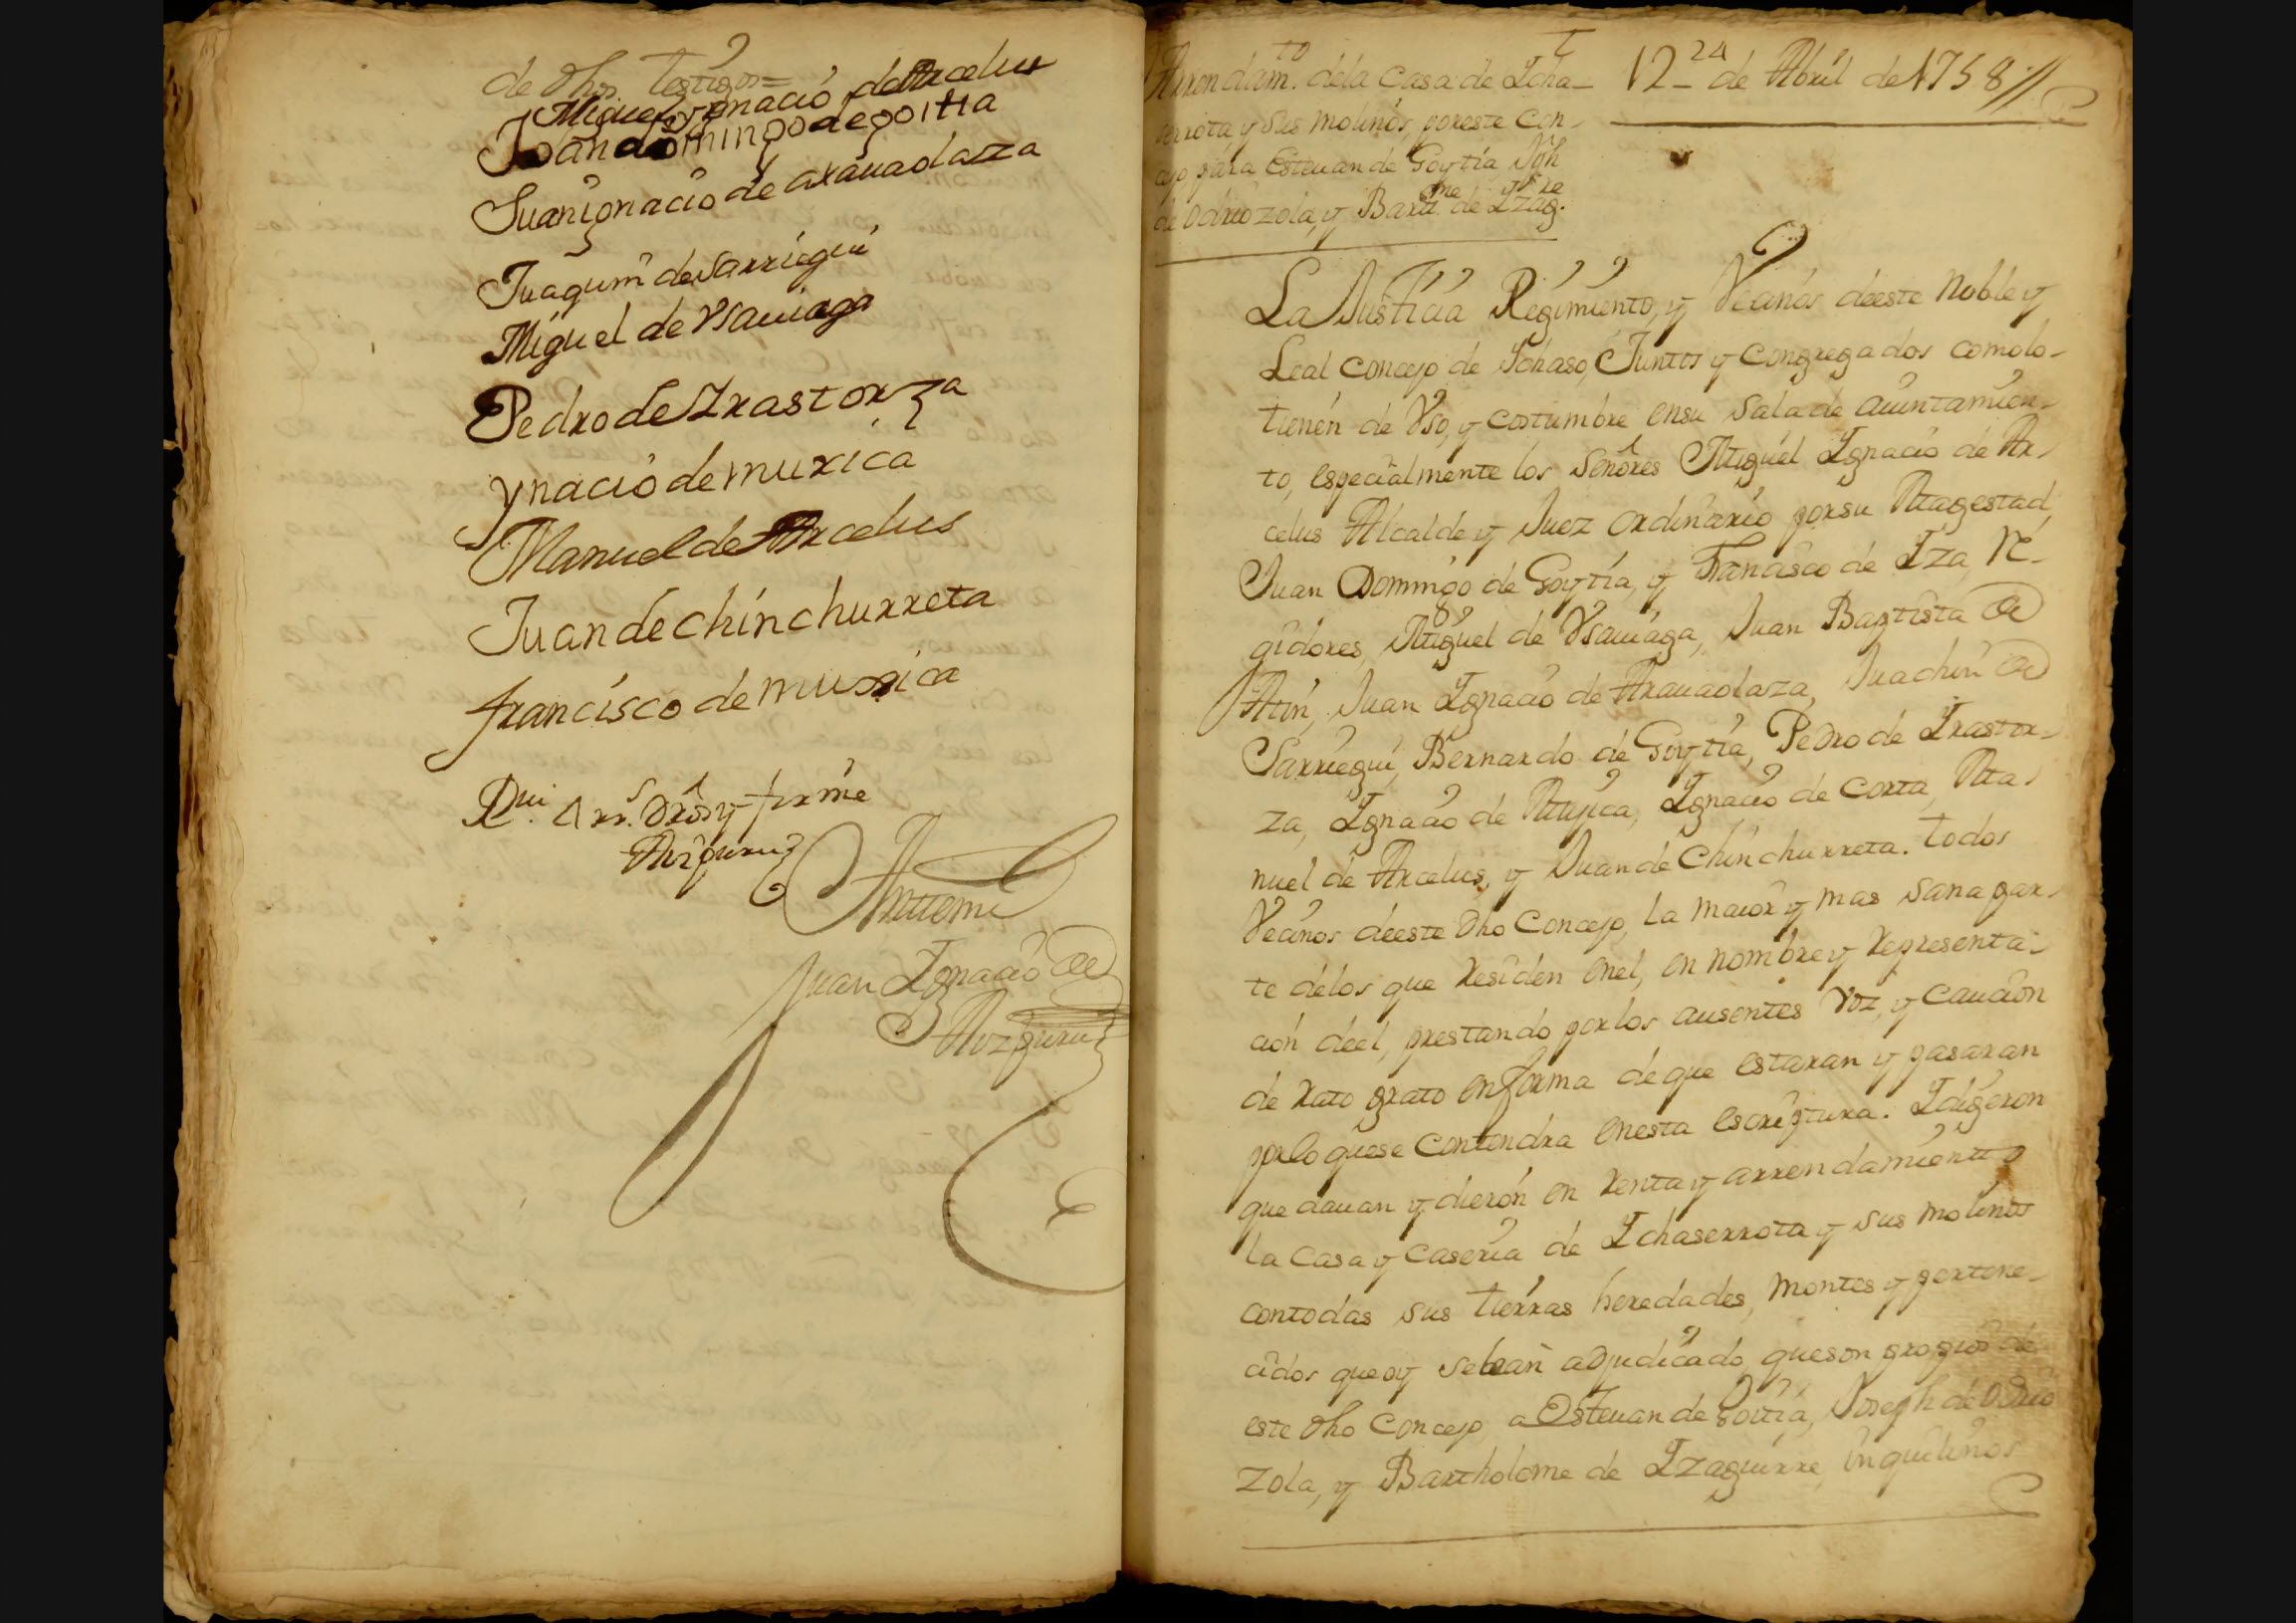 de dhos testigos=
Miguel Ygnacio de Arcelus
Joan domingo de goitia
Juan ignacio de arauaolaza
Juaquin de Sarriegui
Miguel de Vsauiaga
Pedro de Yrastorza
ynacio de muxica
Manuel de Arcelus
Juan de chinchurreta
francisco de muxica
Dros y firme
Aizpuru
Antte mi
Juan Ygnacio de
Aizpuru
Arrendamto. dela Casa de Ycha-
serrota y Sus molinos, por este Con-
cejo para Esteuan de Goytia Jph
de Odriozola, y Barme. de Yzagre.
12- 24 de Abril de 1758//
La Justicia Regimiento, y Vecinos deeste Noble y
Leal Concejo de Ychaso, Juntos y Congregados comolo-
tienen de Vso, y costumbre ensu Sala de Auintamien-
to, especialmente los Señores Miguel Ygnacio de Ar-
celus Alcalde y Juez ordinario por su Magestad,
Juan Domingo de Goytia, y Francisco de Yza, Re-
gidores, Miguel de Vsauiaga, Juan Baptista de
Atin, Juan Ygnacio de Arauaolaza, Juachin de
Sarriegui, Bernardo de Goytia, Pedro de Yrastor-
za, Ygnacio de Mujica, Ygnacio de Corta, Ma-
nuel de Arcelus, y Juan de Chinchurreta. todos
Vecinos deeste dho Concejo, la maior y mas sana par-
te delos que residen enel, en nombre y representa-
cion deel, prestando por los ausentes voz, y caucion
de rato grato en forma de que estaran y pasaran
por lo quese Contendra enesta escriptura. Y digeron
que dauan y dieron en renta y arrendamiento
la casa y caseria de Ychaserrota y sus molinos
contodas sus tierras heredades, montes y pertene-
cidos que oy se lean adjudicado, queson propios de
este dho Concejo, a Esteuan de Goitia, Joseph de Odrio
zola, y Bartholome de Yzaguirre, inquilinos